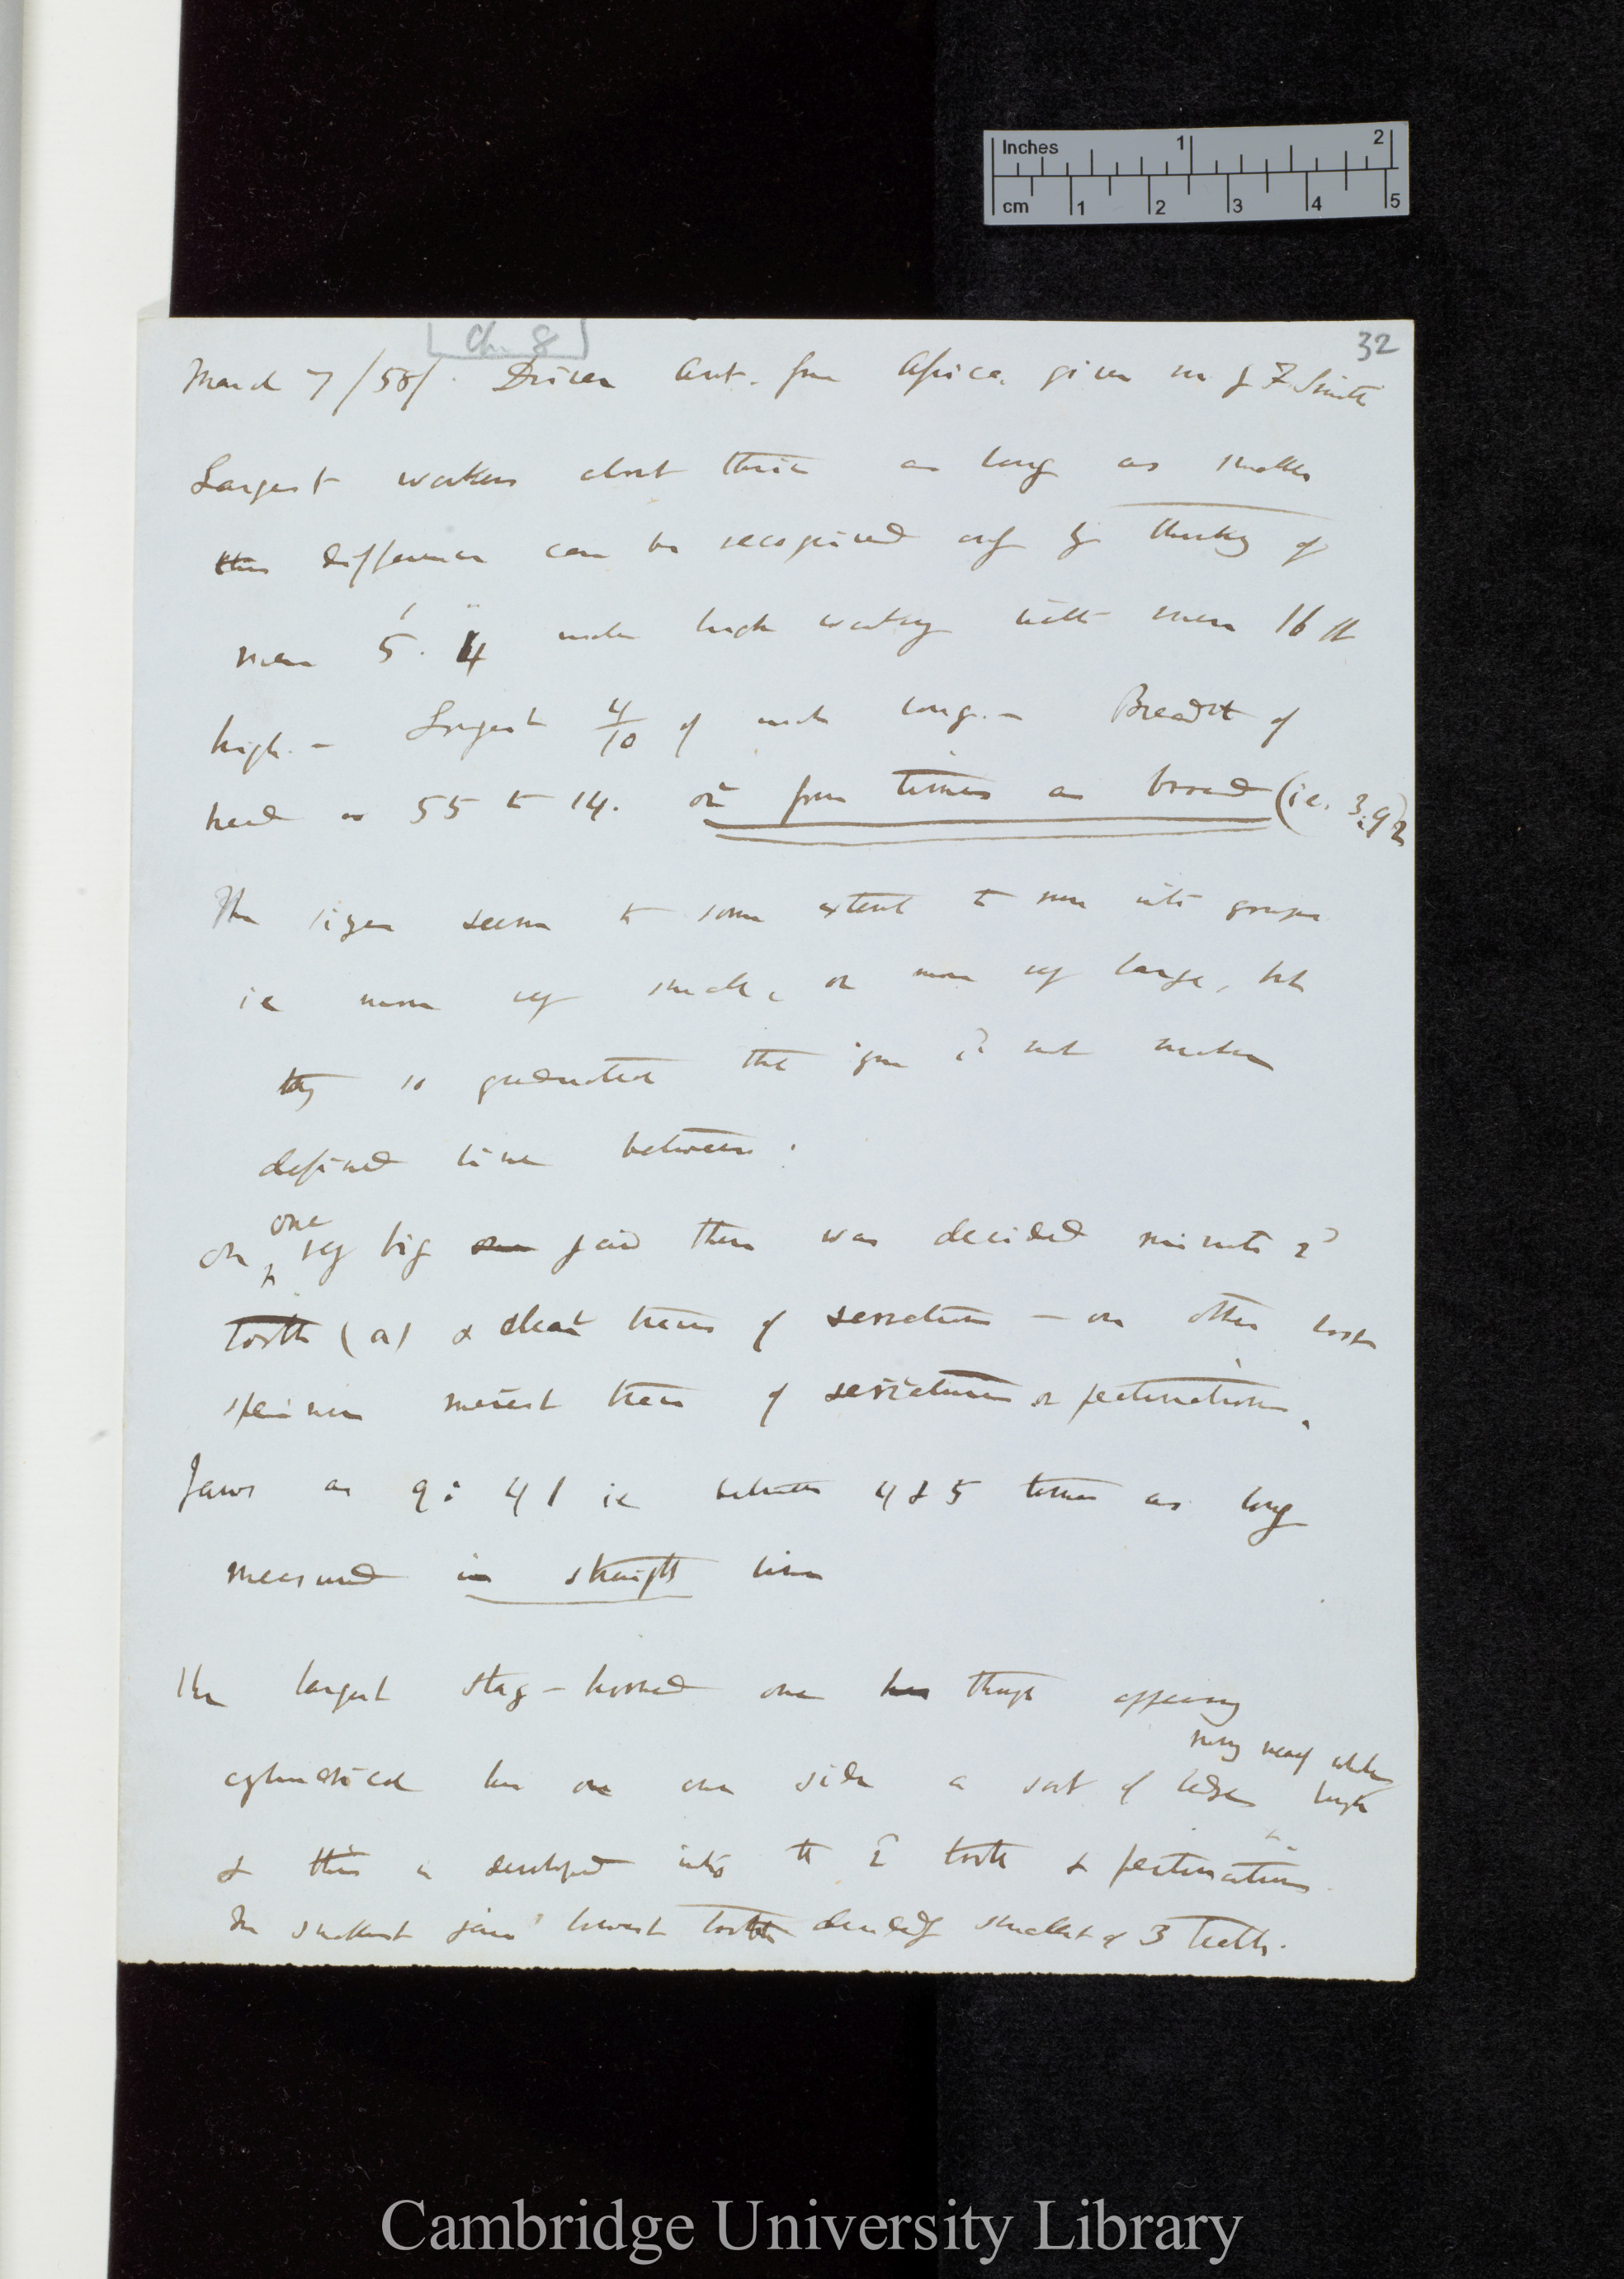 Inches 1 2
cm 1 2 3 4 5
[Ch. 8]
32
March 7/58/. Driver Ant. from Africa. given me by F. Smith
Largest workers about thrice as long as smaller
this difference can be recognised only by thinking of
men 5' 4" inches high working with men 16 ft
high. — Largest 4/10 of inch long. — Breadth of
head as 55 to 14. or four times as broad (ie. 3.92)
The sizes seem to some extent to run into groups
ie more very small, or more very large, but
they so graduated that is not
defined line between.
On one very big jaw there was decided minute 2d
tooth (a) & clear traces of serration — on other large
specimen merest trace of serratures or pectinations.
Jaws as 9: 41 ie between 4 & 5 times as long
measured in straight line
The largest stag-horned one has though appearing
cylindrical has on one side a sort of ledge running nearly whole length
& this is developed into the 2d tooth & pectinations.
In smallest jaws lowest tooth decidedly smallest of 3 teeth.
Cambridge University Library